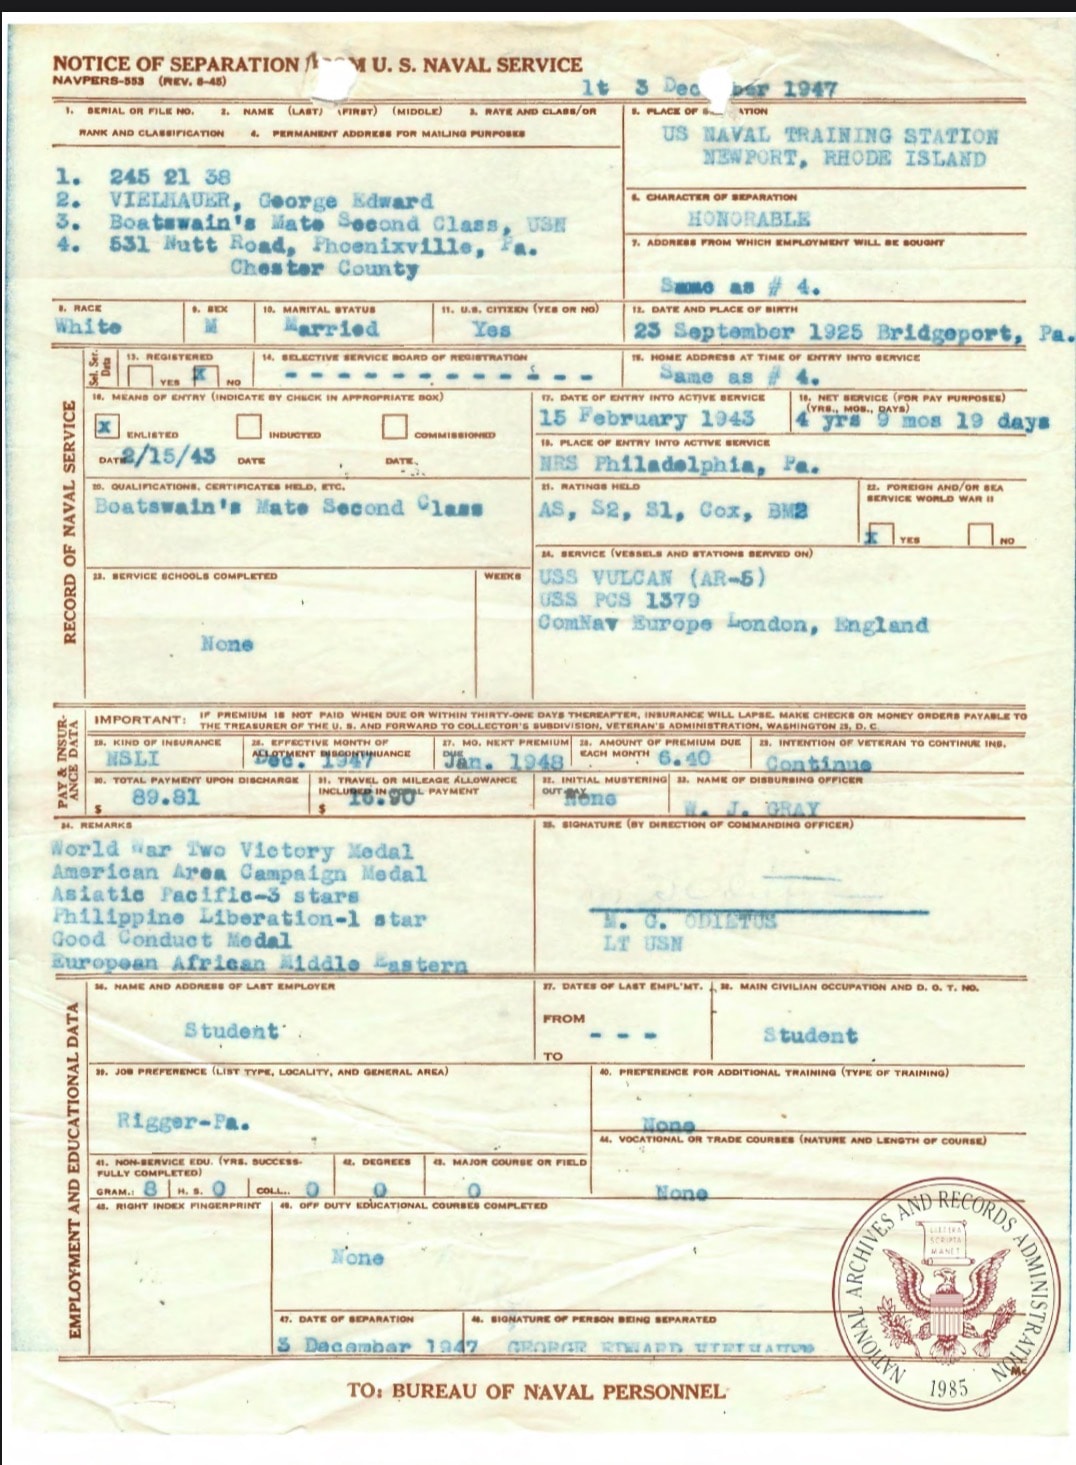 NOTICE OF SEPARATION M U. S. NAVAL SERVICE
NAVPERS-553 (REV. 8-45)
1t 3 Dec ber 1947
1. SERIAL OR FILE NO. 2. NAME (LAST) (FIRST) (MIDDLE) 3. RATE AND CLASS/OR
RANK AND CLASSIFICATION 4. PERMANENT ADDRESS FOR MAILING PURPOSES
1. 245 21 38
2. VIELHAUER, George Edward
3. Boatswain's Mate Second Class, USN
4. 531 Nutt Road, Phoenixville, Pa.
Chester County
5. PLACE OF S ATION
US NAVAL TRAINING STATION
NEWPORT, RHODE ISLAND
6. CHARACTER OF SEPARATION
HONORABLE
7. ADDRESS FROM WHICH EMPLOYMENT WILL BE SOUGHT
Same as # 4.
8. RACE
White
9. SEX
M
10. MARITAL STATUS
Married
11. U.S. CITIZEN (YES OR NO)
Yes
12. DATE AND PLACE OF BIRTH
23 September 1925 Bridgeport, Pa.
Sel. Ser. Data
13. REGISTERED
YES X NO
14. SELECTIVE SERVICE BOARD OF REGISTRATION
- - - - - - - - - - - -
15. HOME ADDRESS AT TIME OF ENTRY INTO SERVICE
Same as # 4.
RECORD OF NAVAL SERVICE
16. MEANS OF ENTRY (INDICATE BY CHECK IN APPROPRIATE BOX)
X ENLISTED INDUCTED COMMISSIONED
DATE 2/15/43 DATE DATE
17. DATE OF ENTRY INTO ACTIVE SERVICE
15 February 1943
18. NET SERVICE (FOR PAY PURPOSES)
(YRS., MOS., DAYS)
4 yrs 9 mos 19 days
19. PLACE OF ENTRY INTO ACTIVE SERVICE
NRS Philadelphia, Pa.
20. QUALIFICATIONS, CERTIFICATES HELD, ETC.
Boatswain's Mate Second Class
21. RATINGS HELD
AS, S2, S1, Cox, BM2
22. FOREIGN AND/OR SEA
SERVICE WORLD WAR II
X YES NO
23. SERVICE SCHOOLS COMPLETED WEEKS
None
24. SERVICE (VESSELS AND STATIONS SERVED ON)
USS VULCAN (AR-5)
USS PCS 1379
ComNav Europe London, England
PAY & INSUR-
ANCE DATA
IMPORTANT: IF PREMIUM IS NOT PAID WHEN DUE OR WITHIN THIRTY-ONE DAYS THEREAFTER, INSURANCE WILL LAPSE. MAKE CHECKS OR MONEY ORDERS PAYABLE TO
THE TREASURER OF THE U. S. AND FORWARD TO COLLECTOR'S SUBDIVISION, VETERAN'S ADMINISTRATION, WASHINGTON 25, D. C.
25. KIND OF INSURANCE
NSLI
26. EFFECTIVE MONTH OF
ALLOTMENT DISCONTINUANCE
Dec. 1947
27. MO. NEXT PREMIUM
DUE
Jan. 1948
28. AMOUNT OF PREMIUM DUE
EACH MONTH 6.40
29. INTENTION OF VETERAN TO CONTINUE INS.
Continue
30. TOTAL PAYMENT UPON DISCHARGE
$ 89.81
31. TRAVEL OR MILEAGE ALLOWANCE
INCLUDED IN TOTAL PAYMENT
$ 16.90
32. INITIAL MUSTERING
OUT PAY
None
33. NAME OF DISBURSING OFFICER
W. J. GRAY
34. REMARKS
World War Two Victory Medal
American Area Campaign Medal
Asiatic Pacific-3 stars
Philippine Liberation-1 star
Good Conduct Medal
European African Middle Eastern
35. SIGNATURE (BY DIRECTION OF COMMANDING OFFICER)
M. C. ODIETUS
LT USN
EMPLOYMENT AND EDUCATIONAL DATA
36. NAME AND ADDRESS OF LAST EMPLOYER
Student
37. DATES OF LAST EMPL'MT.
FROM
- - -
TO
38. MAIN CIVILIAN OCCUPATION AND D. O. T. NO.
Student
39. JOB PREFERENCE (LIST TYPE, LOCALITY, AND GENERAL AREA)
Rigger-Pa.
40. PREFERENCE FOR ADDITIONAL TRAINING (TYPE OF TRAINING)
None
41. NON-SERVICE EDU. (YRS. SUCCESS-
FULLY COMPLETED)
GRAM.: 8 H. S. 0 COLL.. 0
42. DEGREES
0
43. MAJOR COURSE OR FIELD
0
44. VOCATIONAL OR TRADE COURSES (NATURE AND LENGTH OF COURSE)
None
45. RIGHT INDEX FINGERPRINT
46. OFF DUTY EDUCATIONAL COURSES COMPLETED
None
47. DATE OF SEPARATION
3 December 1947
48. SIGNATURE OF PERSON BEING SEPARATED
GEORGE EDWARD VIELHAUER
TO: BUREAU OF NAVAL PERSONNEL
NATIONAL ARCHIVES AND RECORDS ADMINISTRATION
LITTERA
SCRIPTA
MANET
1985